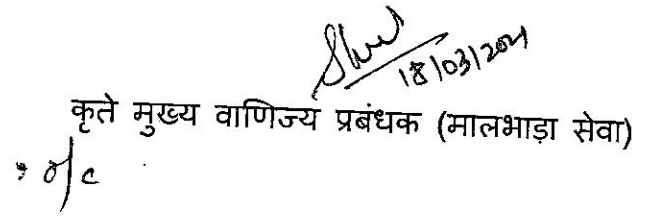 18/03/2021
कृते मुख्य वाणिज्य प्रबंधक (मालभाड़ा सेवा)
o/c